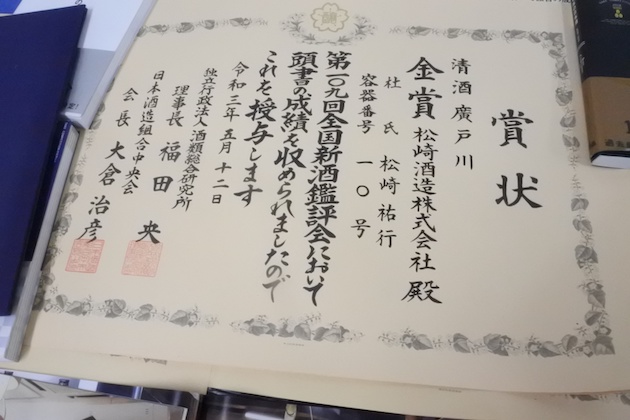 賞状
清酒 廣戸川
金賞 松崎酒造株式会社 殿
杜氏 松崎祐行
容器番号 一〇号
第一〇九回全国新酒鑑評会において
頭書の成績を収められましたので
これを授与します
令和三年五月十二日
独立行政法人酒類総合研究所
理事長 福田 央
日本酒造組合中央会
会長 大倉 治彦